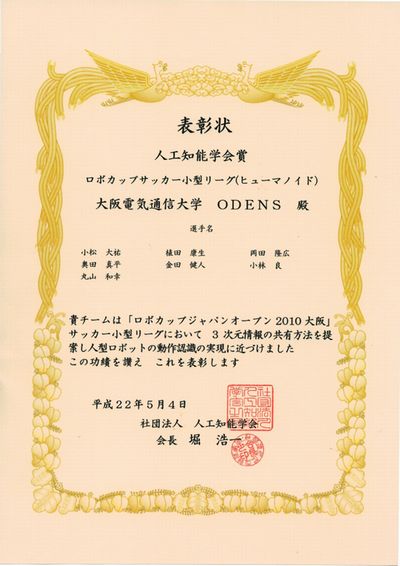 表彰状
人工知能学会賞
ロボカップサッカー小型リーグ(ヒューマノイド)
大阪電気通信大学 ODENS 殿
選手名
小松 大祐 植田 康生 岡田 隆広
奥田 真平 金田 健人 小林 良
丸山 和幸
貴チームは「ロボカップジャパンオープン2010大阪」
サッカー小型リーグにおいて 3次元情報の共有方法を提
案し人型ロボットの動作認識の実現に近づけました
この功績を讃え これを表彰します
平成22年5月4日
社団法人 人工知能学会
会長 堀 浩一